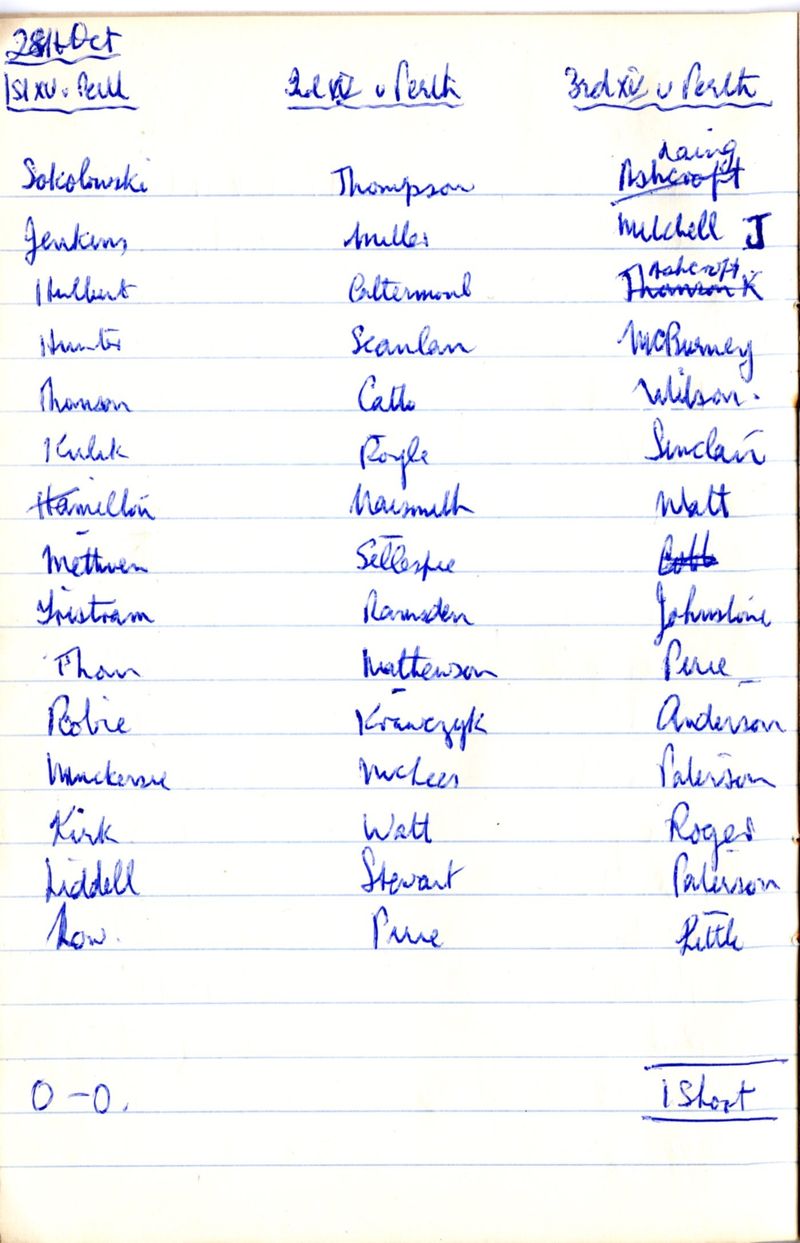 28th Oct
1st XV v Perth 2nd XV v Perth 3rd XV v Perth
Laing
Sokolowski Thompson Ashcroft
Jenkins Miller Mitchell J
Ashcroft
Hulbert Cattermoul Thomson K
Hunter Scanlan McBurney
Thomson Catto Wilson.
Kulik Royle Sinclair
Hamilton Naismith Watt
Methven Gillespie
Tristram Ramsden Johnstone
Thom Mathewson Pirie
Robbie Krawczyk Anderson
Mackenzie McLees Paterson
Kirk Watt Roger
Liddell Stewart Paterson
Low. Pirie Little
0-0. 1 Short